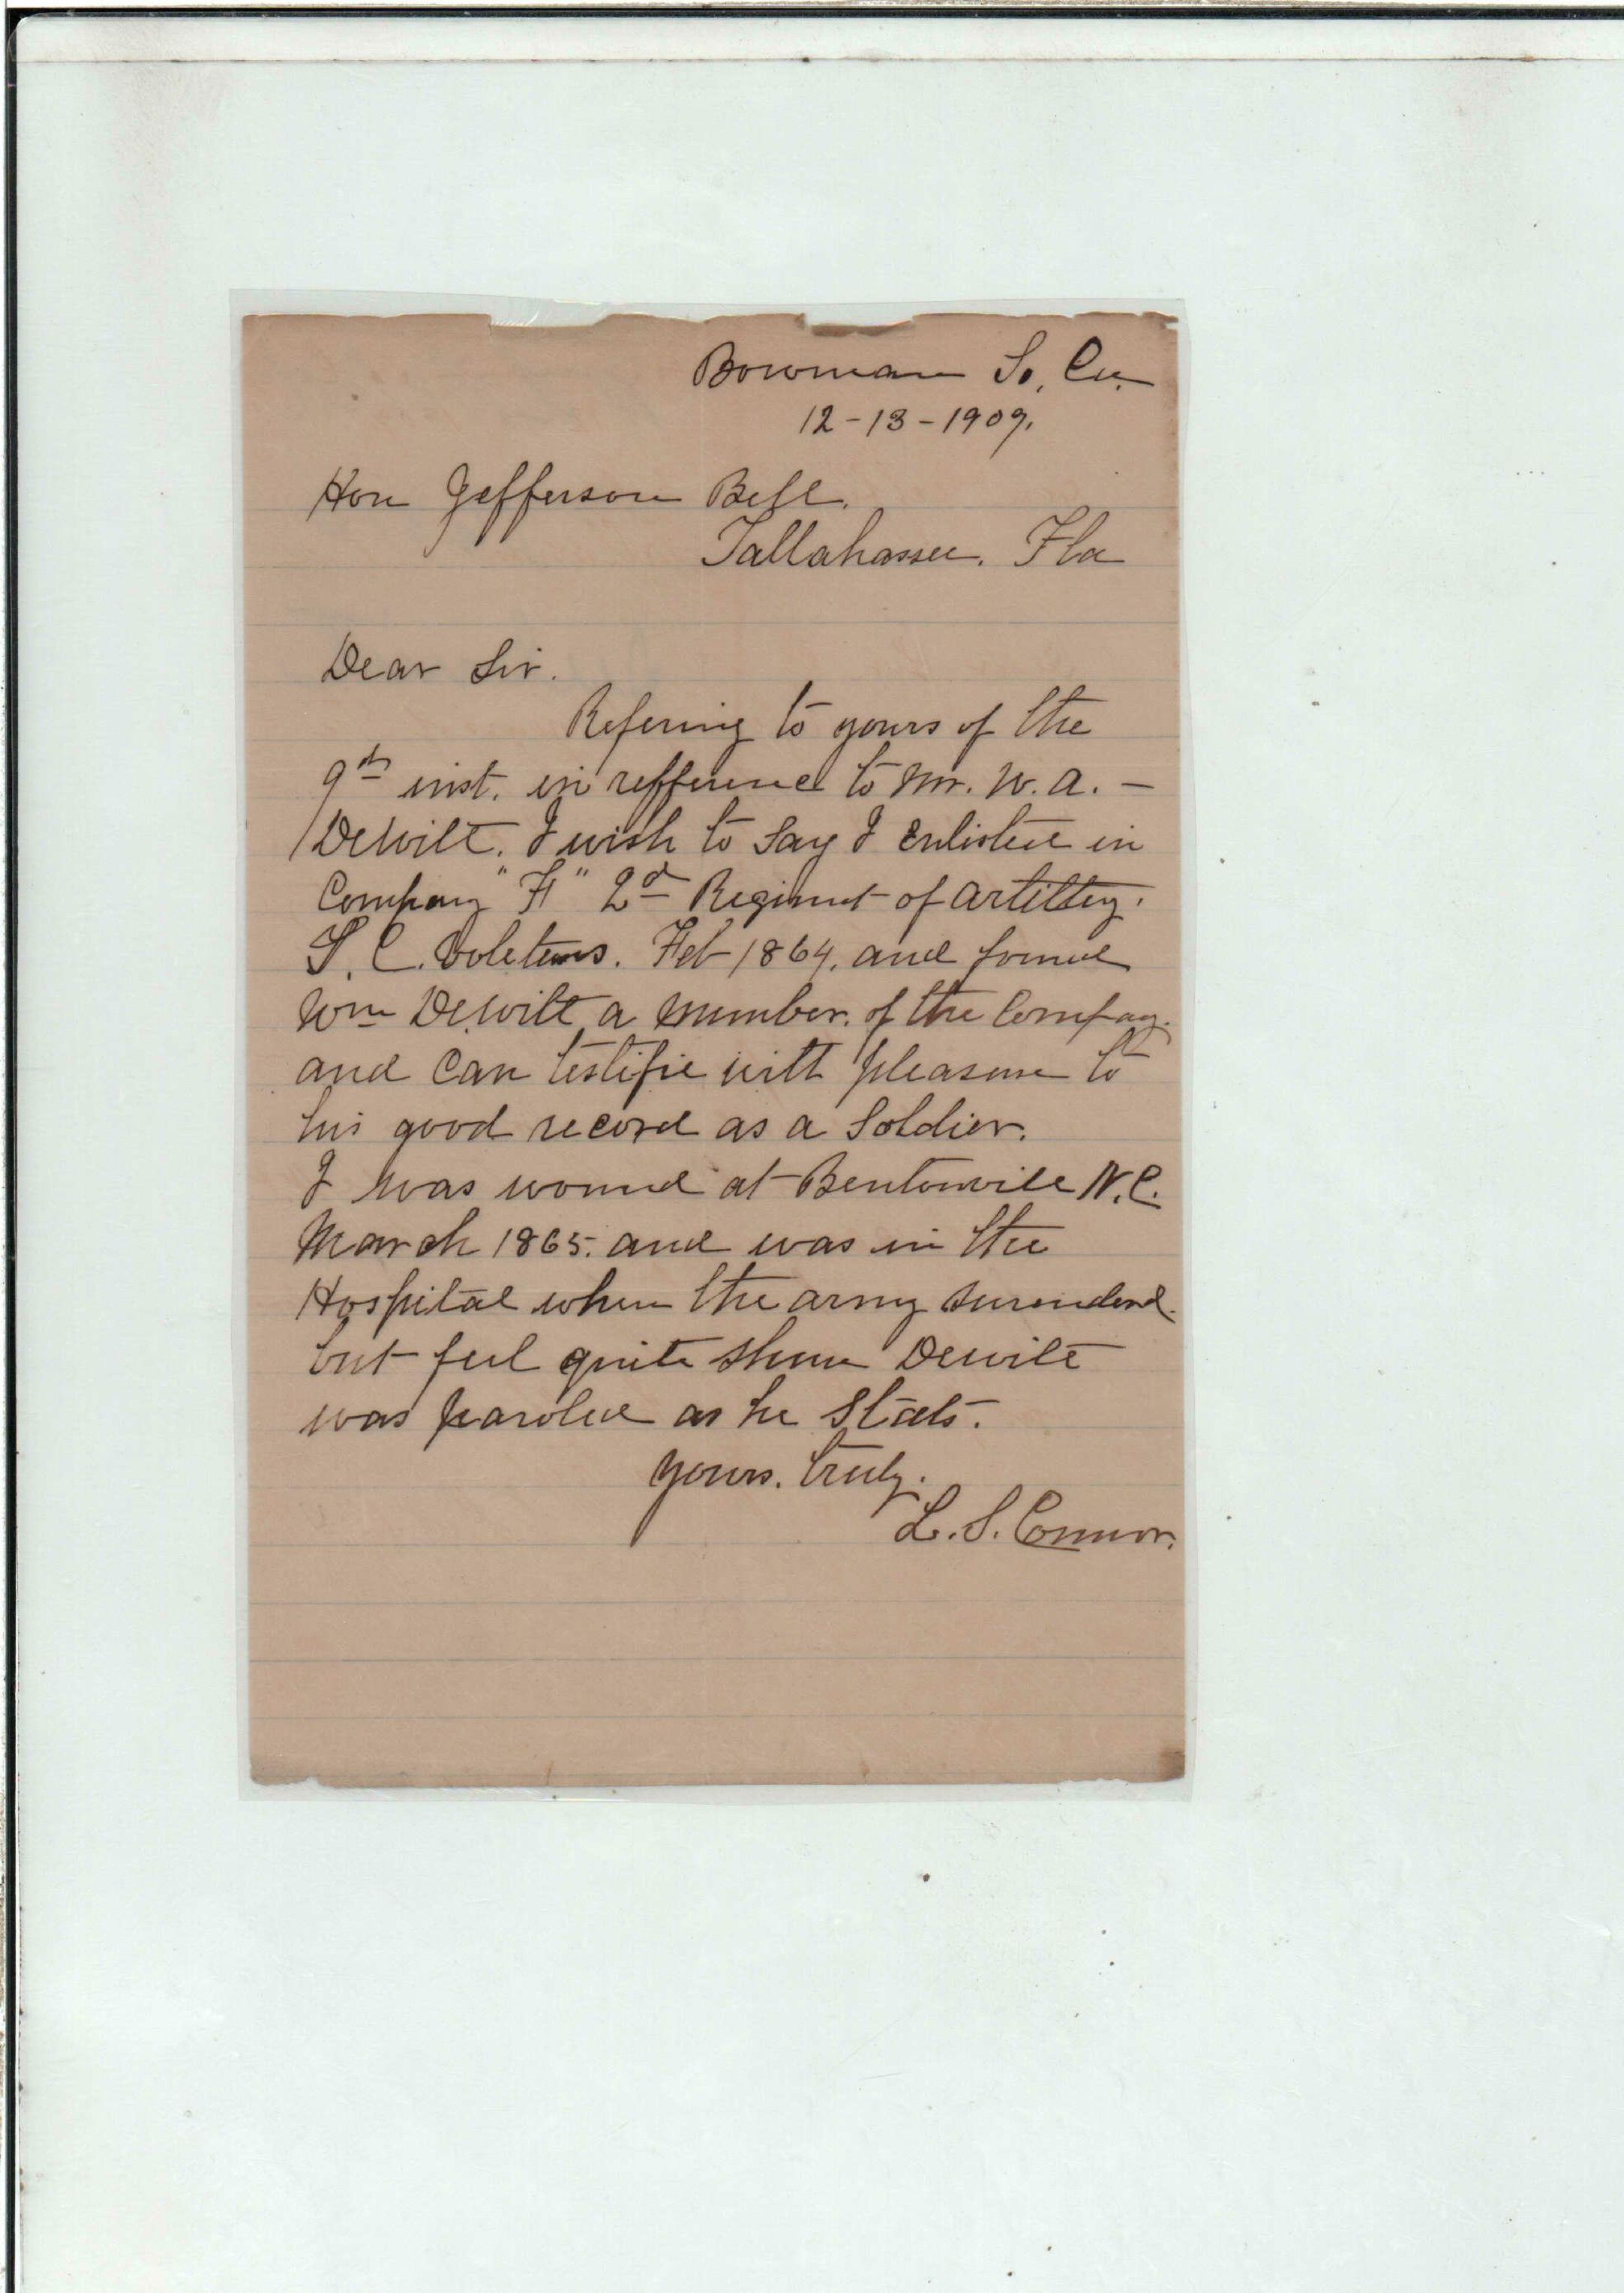 Bowman So. Ca.
12-13-1909.
Hon Jefferson Bell.
Tallahassee. Fla
Dear Sir.
Refering to yours of the
9th inst. in refference to Mr. W. A. -
DeWitt. I wish to Say I Enlisted in
Company "F" 2d Regiment of Artillery.
S. C. Voleteers. Feb 1864. and found
Wm DeWitt a member. of the Company.
and Can testifie with pleasure to
his good record as a Soldier.
I was wound at Bentonville N.C.
March 1865. and was in the
Hospital when the army surendered.
but feel quite shure Dewitt
was paroled as he Stats.
yours. truly.
L. S. Connor.